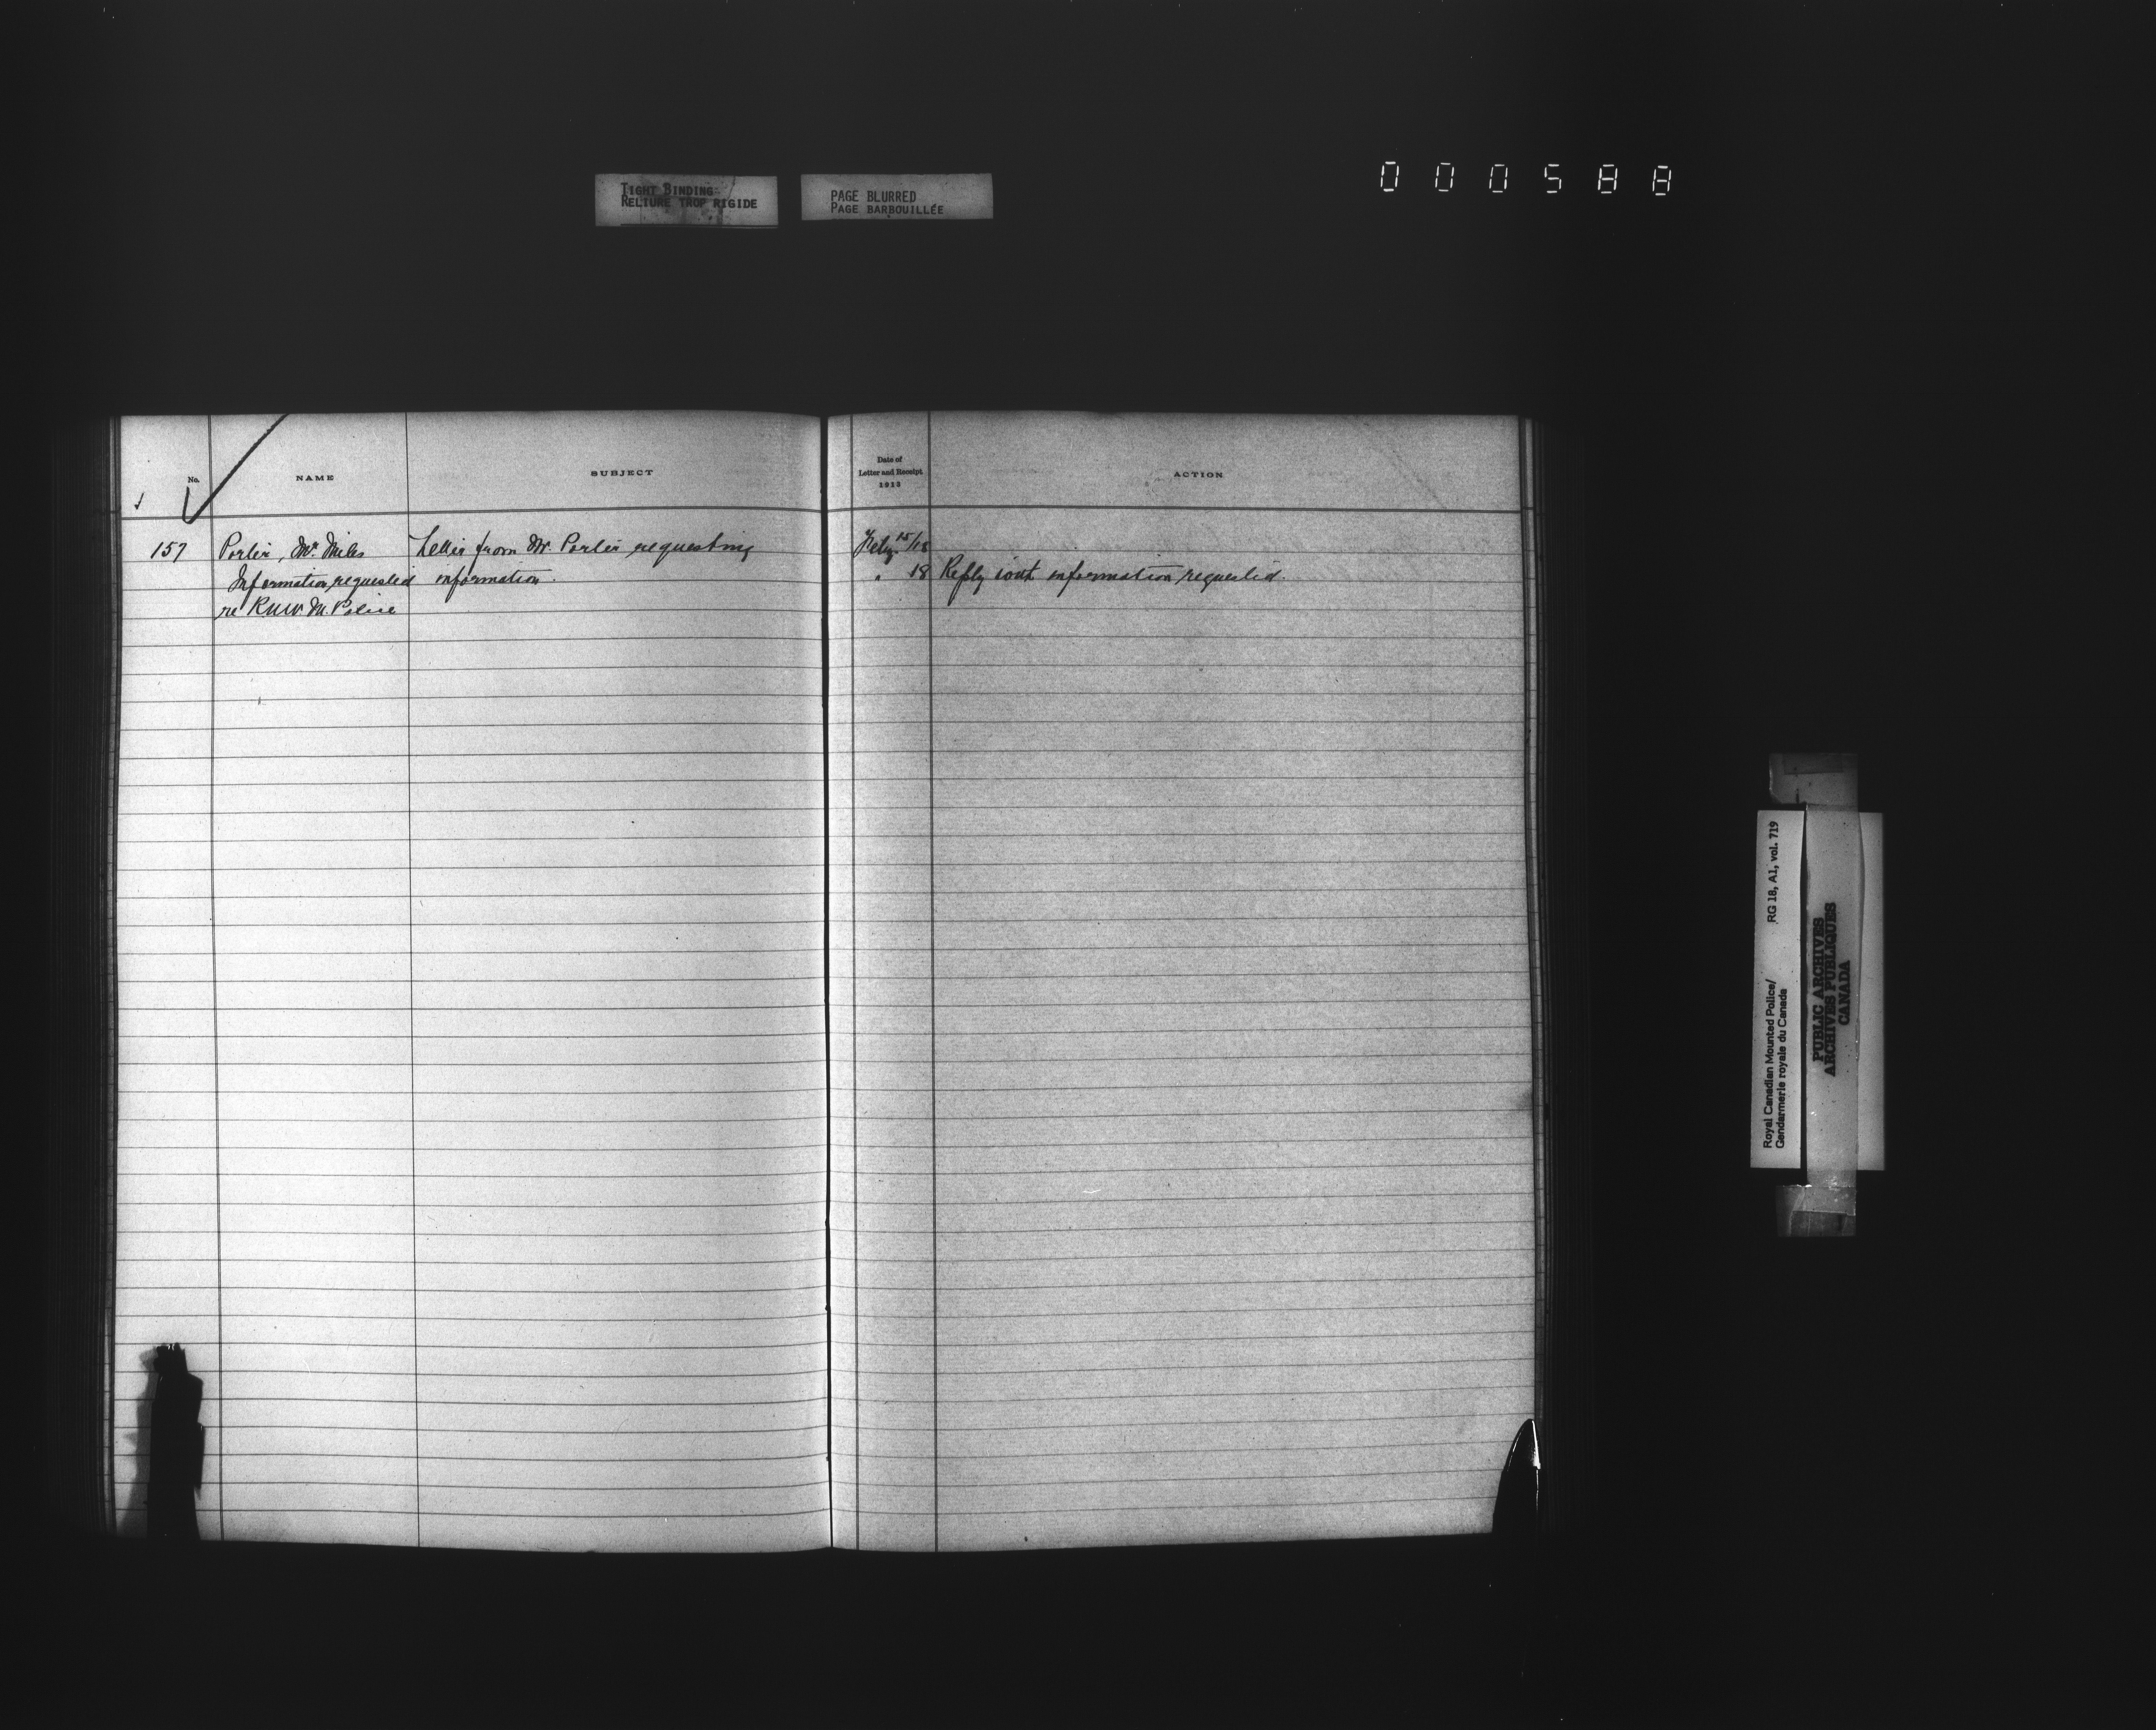 TIGHT BINDING
RELIURE TROP RIGIDE
PAGE BLURRED
PAGE BARBOUILLÉE
000588
No.
NAME
SUBJECT
Date of
Letter and Receipt
1913
ACTION
157 Porter, Mr. Miles Letter from Mr. Porter requesting Feby. 15/18
Information requested information. " 18 Reply with information requested.
re R.N.W.M. Police
Royal Canadian Mounted Police/ RG 18, A1, vol. 719
Gendarmerie royale du Canada
PUBLIC ARCHIVES
ARCHIVES PUBLIQUES
CANADA